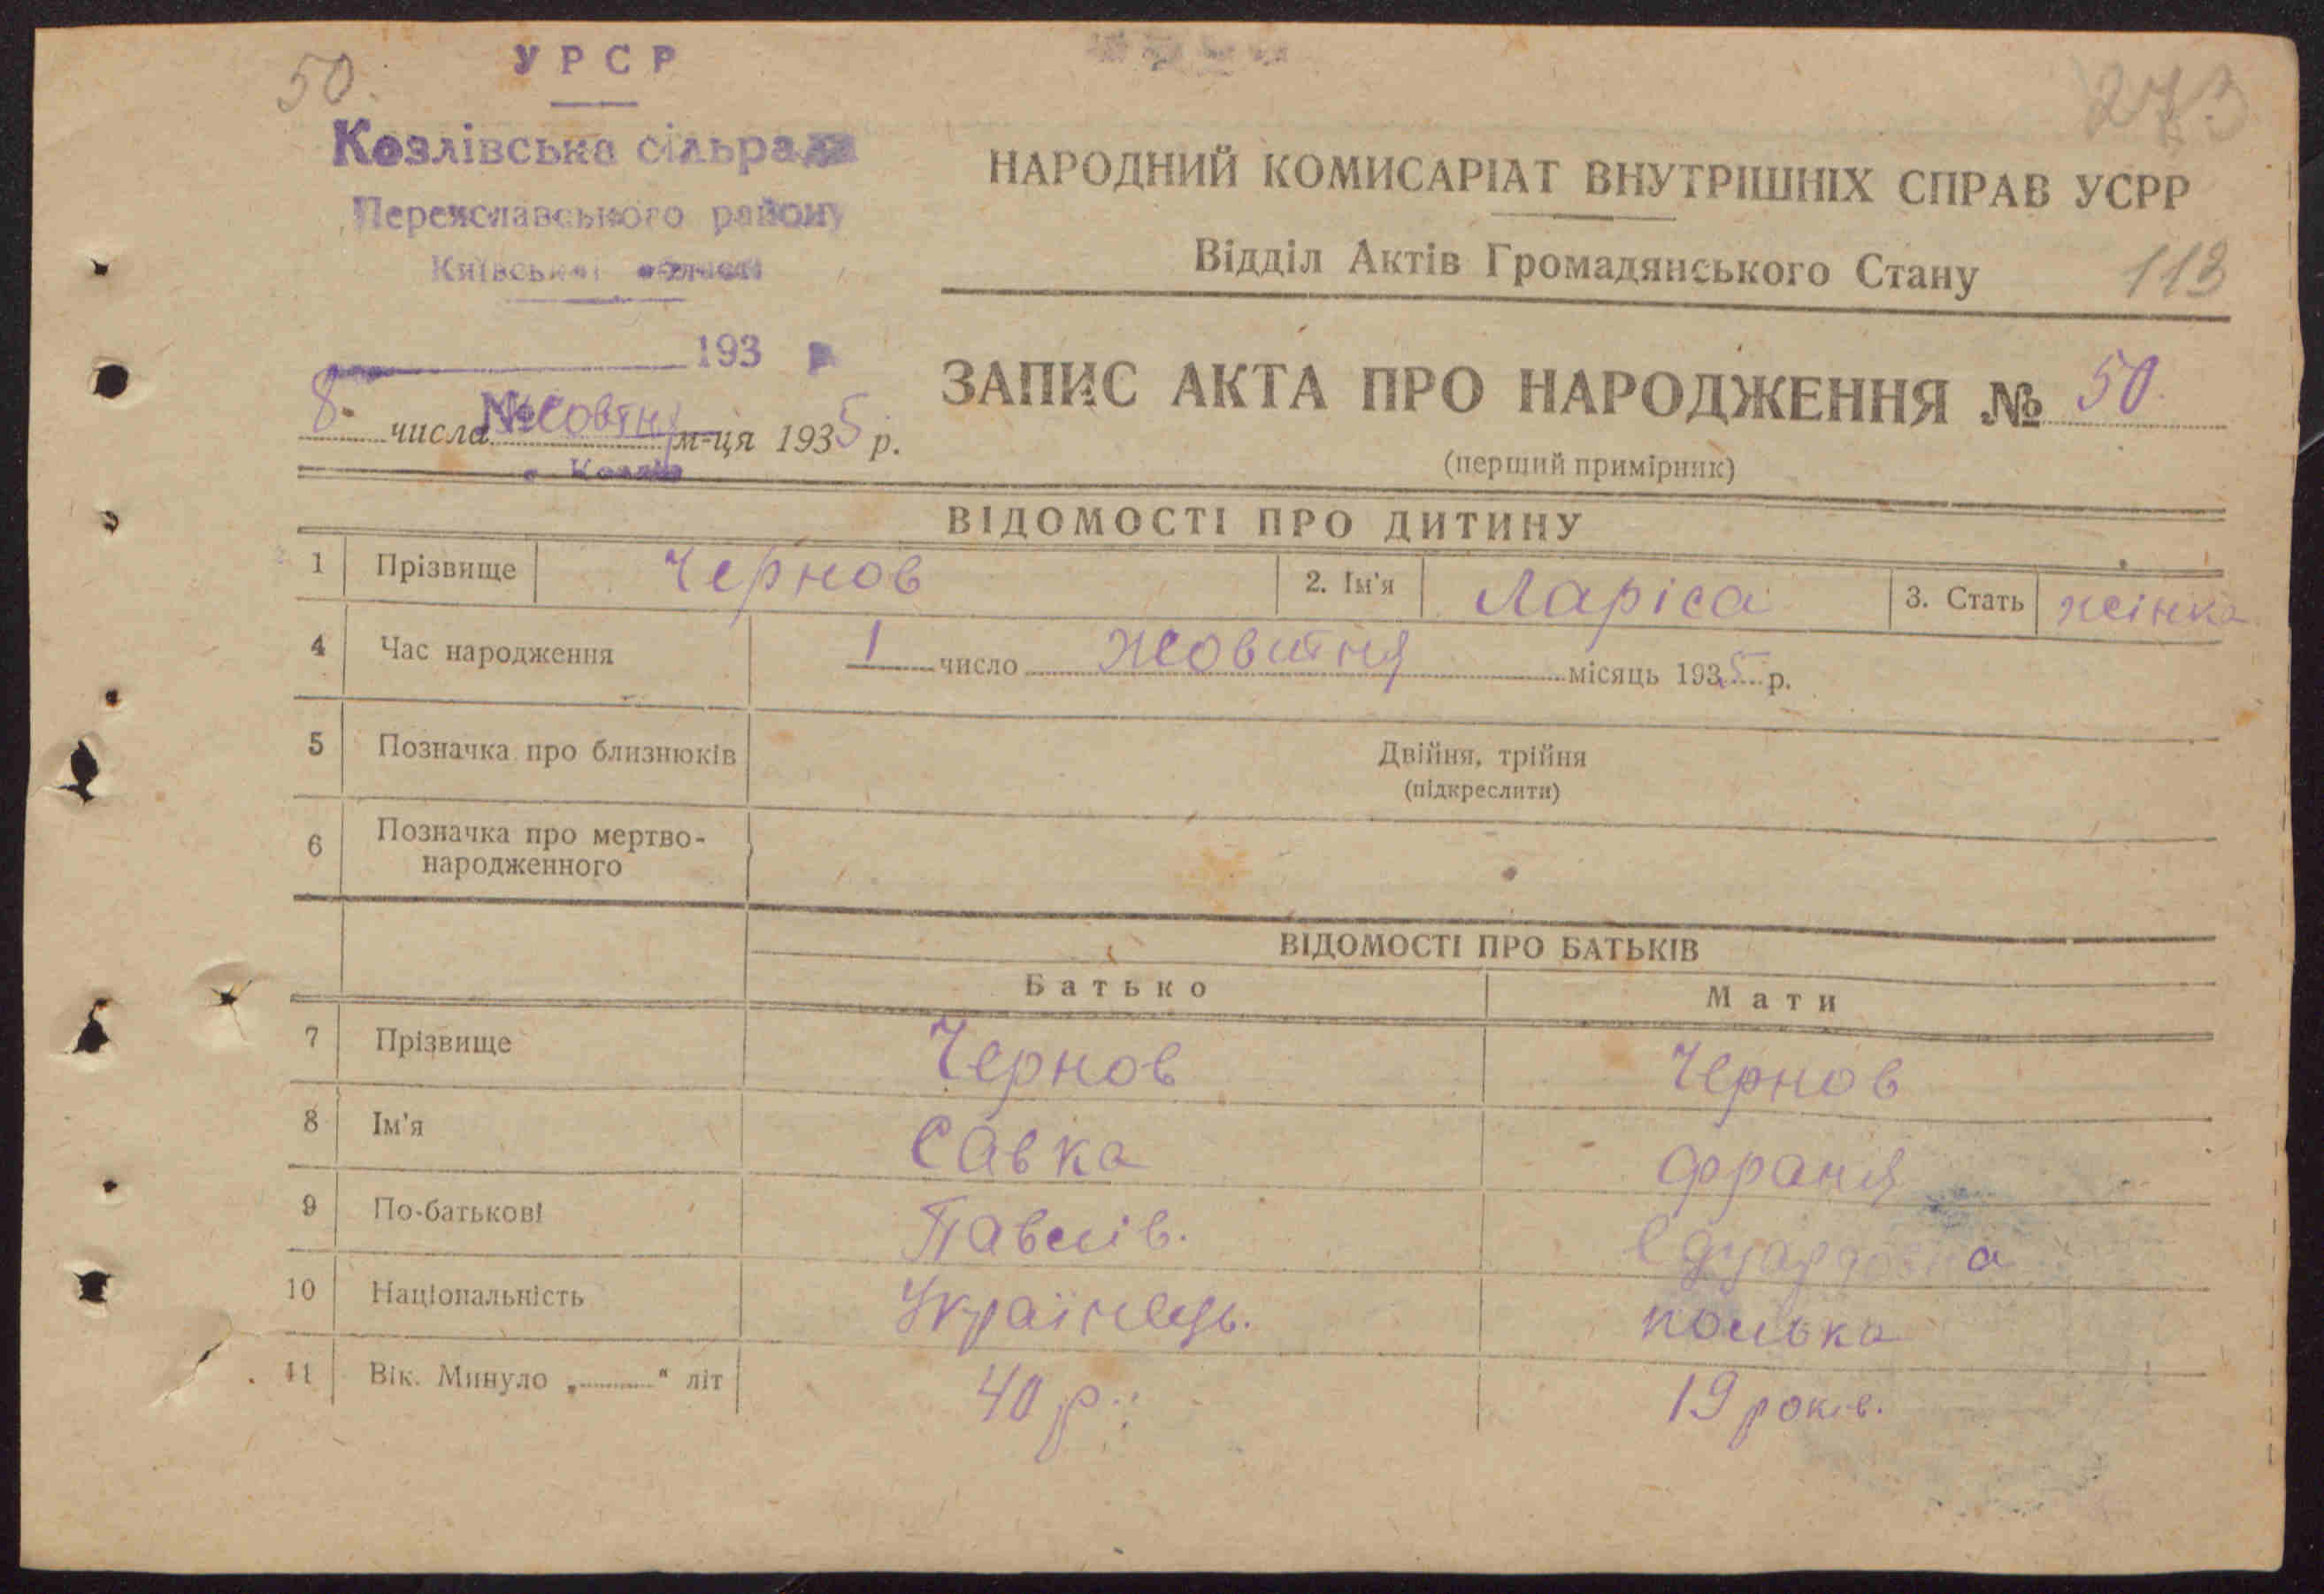 50.
УРСР
Козлівська сільрада
Переяславського району
Київської області
193 р
№
с Козлів
273
НАРОДНИЙ КОМИСАРІАТ ВНУТРІШНІХ СПРАВ УСРР
Відділ Актів Громадянського Стану
113
8 числа Жовтня м-ця 1935 р.
ЗАПИС АКТА ПРО НАРОДЖЕННЯ № 50.
(перший примірник)
ВІДОМОСТІ ПРО ДИТИНУ
1 Прізвище Чернов 2. Ім'я Ларіса 3. Стать жінка
4 Час народження 1 число Жовтня місяць 1935 р.
5 Позначка про близнюків Двійня, трійня
(підкреслити)
6 Позначка про мертво-
народженного
ВІДОМОСТІ ПРО БАТЬКІВ
Батько Мати
7 Прізвище Чернов Чернов
8 Ім'я Савка Франя
9 По-батькові Павлів. Едуардовна
10 Національність Українець. полька
11 Вік. Минуло „ “ літ 40 р. 19 років.